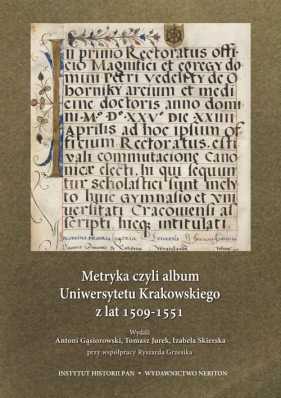 In primo Rectoratus offi
cio Magnifici et egregy do
mini Petri vedelity de O
borniky arcium et medi
cine doctoris anno domi
ni M° D° XXV° DIE XXIII
Aprilis ad hoc ipsum of
ficium Rectoratus esti
vali commutacione Cano
nicae electi, hi qui sequun
tur scholastici sunt incly
to huic gymnasio et vni
versitati Cracoviensi
scripti, hicque intitulati
NOMINA PROPRIA PATRIA DIOCESIS
Metryka czyli album
Uniwersytetu Krakowskiego
z lat 1509-1551
Wydali
Antoni Gąsiorowski, Tomasz Jurek, Izabela Skierska
przy współpracy Ryszarda Grzesika
INSTYTUT HISTORII PAN • WYDAWNICTWO NERITON